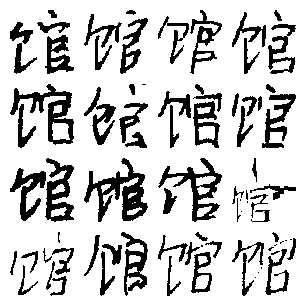 馆馆馆馆
馆馆馆馆
馆馆馆馆
馆馆馆馆